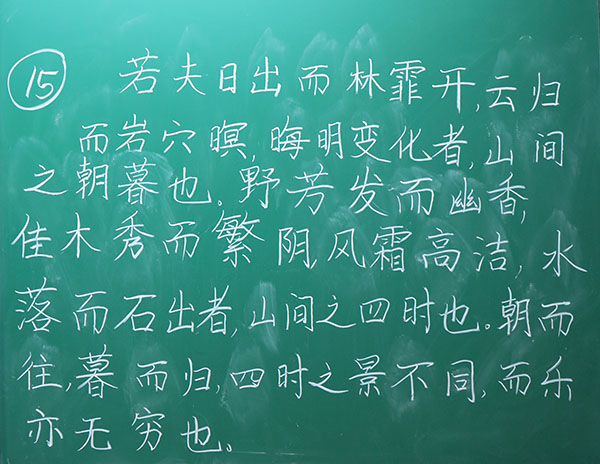 15 若夫日出而林霏开,云归
而岩穴暝,晦明变化者,山间
之朝暮也。野芳发而幽香,
佳木秀而繁阴风霜高洁,水
落而石出者,山间之四时也。朝而
往,暮而归,四时之景不同,而乐
亦无穷也。